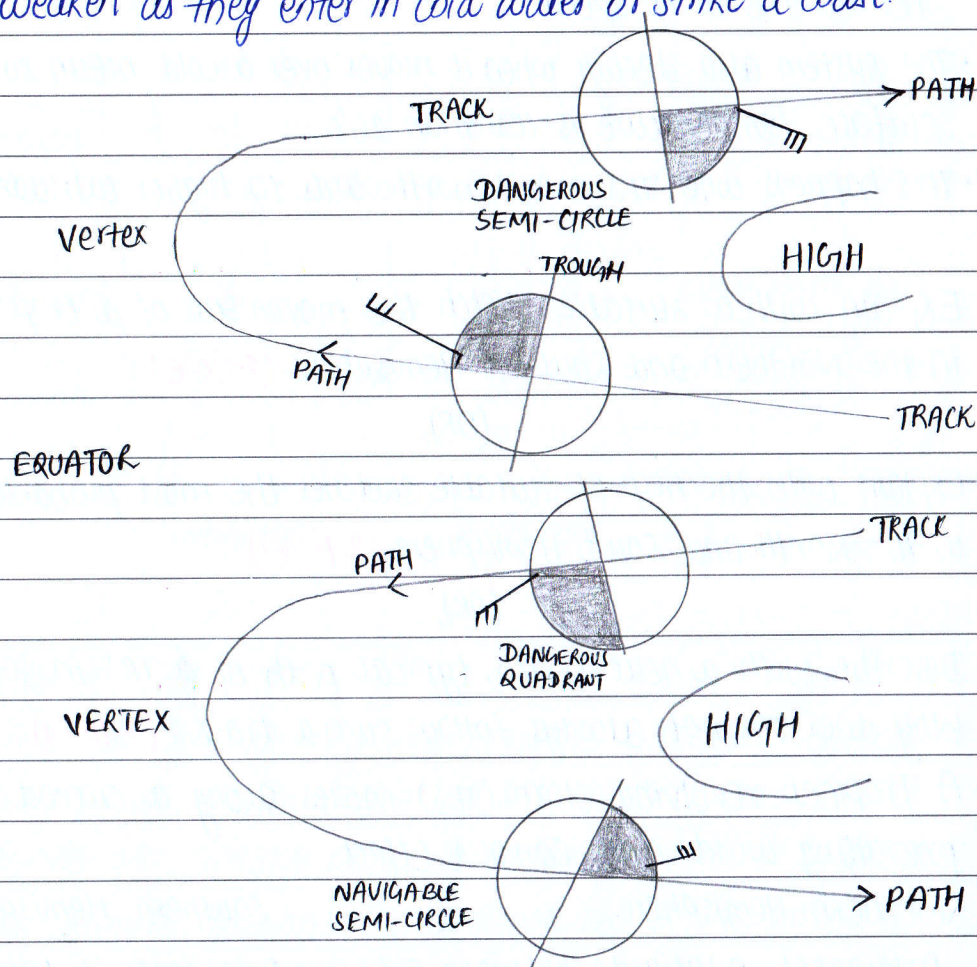 weaken as they enter in cold water or strike a coast.
TRACK
PATH
DANGEROUS
SEMI-CIRCLE
Vertex
HIGH
TROUGH
PATH
TRACK
EQUATOR
TRACK
PATH
DANGEROUS
QUADRANT
VERTEX
HIGH
NAVIGABLE
SEMI-CIRCLE
PATH